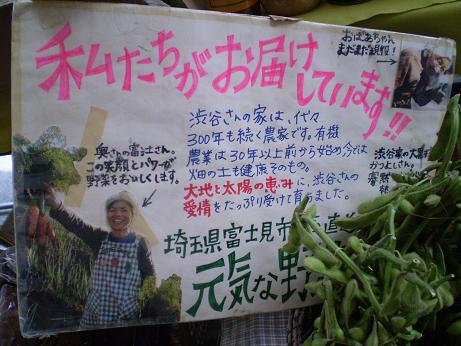 私たちがお届けしています!!
おばあちゃん
まだまだ現役!
奥さんの富江さん。
この笑顔とパワーが
野菜をおいしくします。
渋谷さんの家は、代々
300年も続く農家です。有機
農業は30年以上前から始め今では
畑の土も健康そのもの。
大地と太陽の恵みに、渋谷さんの
愛情をたっぷり受けて育ちました。
渋谷家の大黒
かつよしさん。
埼玉県富士見市
元気な野